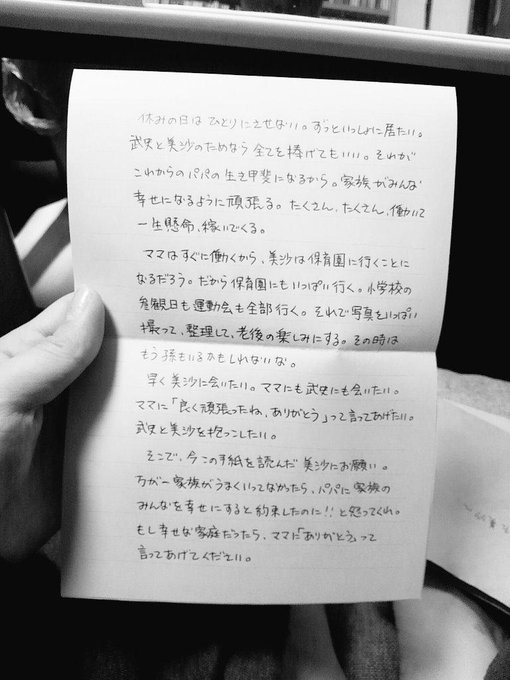 休みの日はひとりにさせない。ずっといっしょに居たい。
武史と美沙のためなら全てを捧げてもいい。それが
これからのパパの生き甲斐になるから。家族がみんな
幸せになるように頑張る。たくさん、たくさん、働いて
一生懸命、稼いでくる。
ママはすぐに働くから、美沙は保育園に行くことに
なるだろう。だから保育園にもいっぱい行く。小学校の
参観日も運動会も全部行く。それで写真をいっぱい
撮って、整理して、老後の楽しみにする。その時は
もう孫もいるかもしれないな。
早く美沙に会いたい。ママにも武史にも会いたい。
ママに「良く頑張ったね、ありがとう」って言ってあげたい。
武史と美沙を抱っこしたい。
そこで、今この手紙を読んだ美沙にお願い。
万が一家族がうまくいってなかったら、パパに家族の
みんなを幸せにすると約束したのに!!と怒ってくれ。
もし幸せな家庭だったら、ママに「ありがとう」って
言ってあげてください。